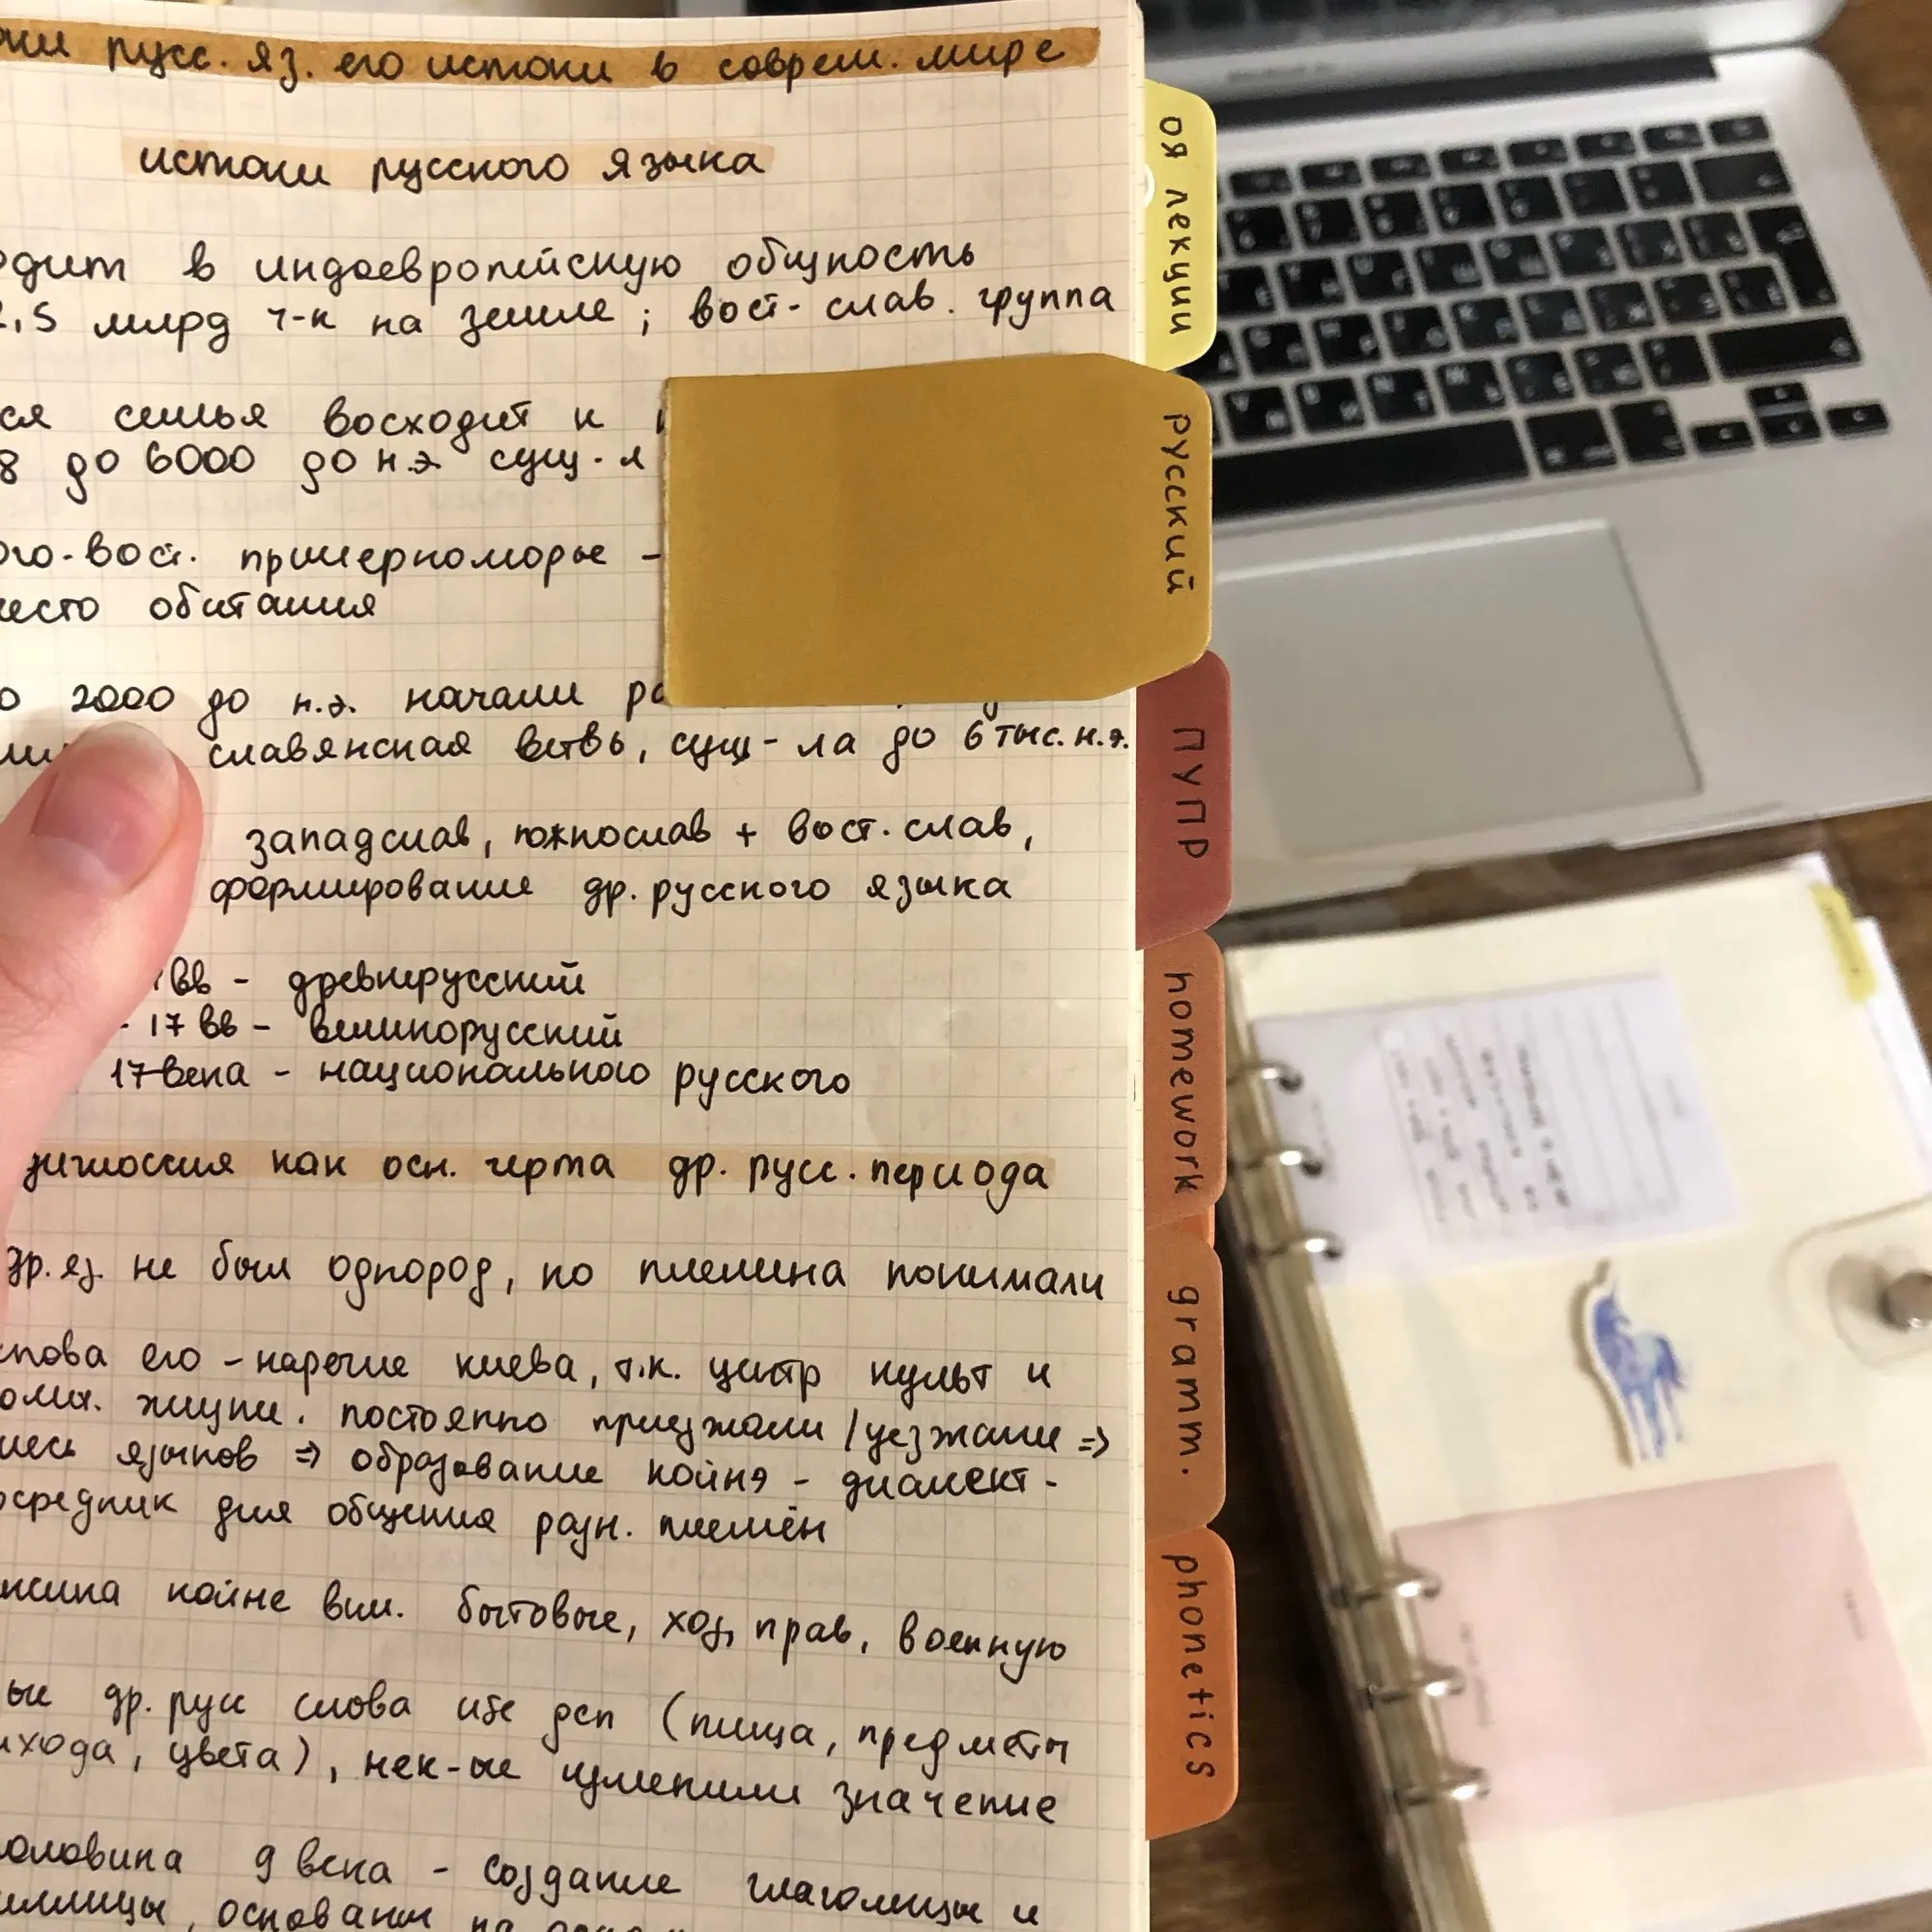 русс. яз. его истоки в соврем. мире
истоки русского языка
одит в индоевропейскую общность
2,5 млрд ч-к на земле; вост-слав. группа
ся семья восходит к
8 до 6000 до н.э. сущ-л
ого-вост. примерноморье -
есто обитания
о 2000 до н.э. начали ра
славянская ветвь, сущ-ла до 6 тыс. н.э.
западслав, южнослав + вост. слав,
формирование др. русского языка
вв - древнерусский
- 17 вв - великорусский
17 века - национального русского
диглоссия как осн. черта др. русс. периода
др. яз. не был однород, но племена понимали
снова его - наречие киева, т.к. центр культ и
жизни. постоянно приезжали / уезжали =>
языков => образование койнэ - диалект-
осредник для общения разн. племён
ксика койне вкл. бытовые, хоз, прав, военную
ые др. рус слова ите дсп (пища, предметы
ихода, цвета), нек-ые изменили значение
оловина 9 века - создание глаголицы и
иллицы, основаны на
оя лекции
русский
ПУПР
homework
gramm.
phonetics